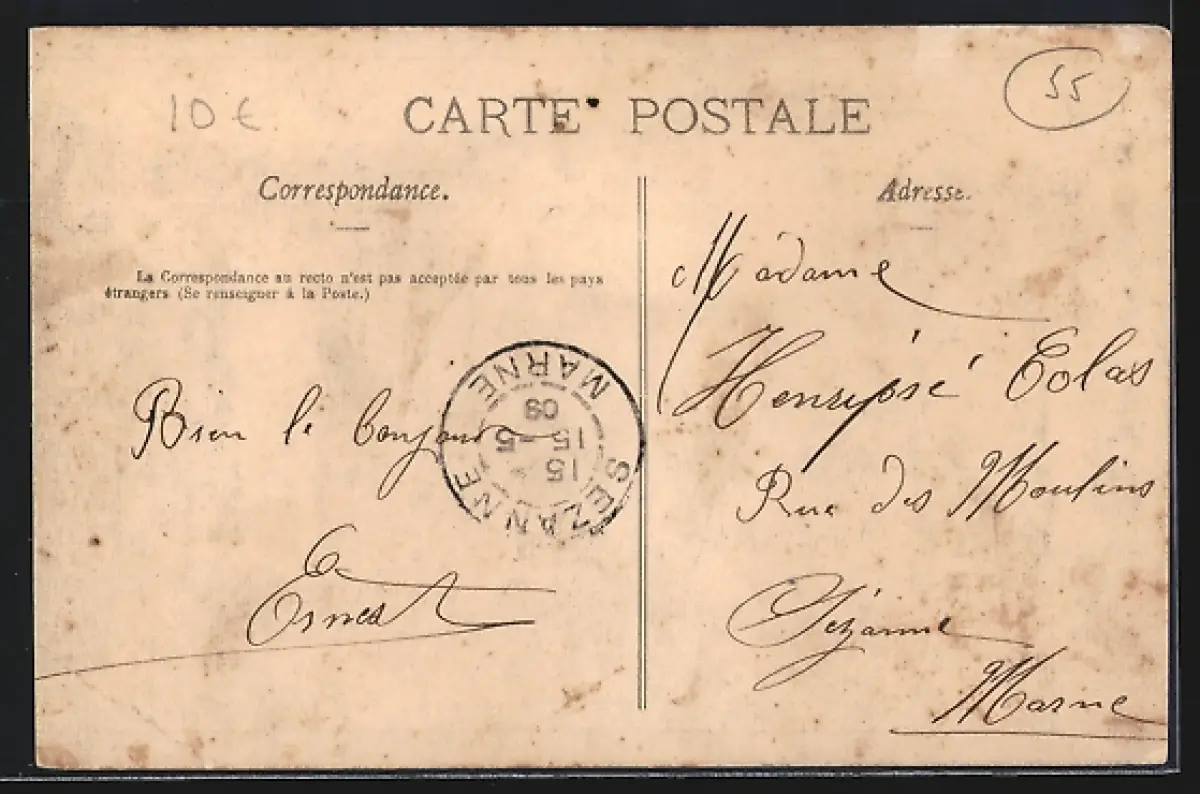 10 €
CARTE POSTALE
55
Correspondance.
La Correspondance au recto n'est pas acceptée par tous les pays
étrangers (Se renseigner à la Poste.)
Bien le bonjour
Ernest
SEZANNE
MARNE
15
15 - 5
09
Adresse.
Madame
Rue des Moulins
Sézanne
Marne